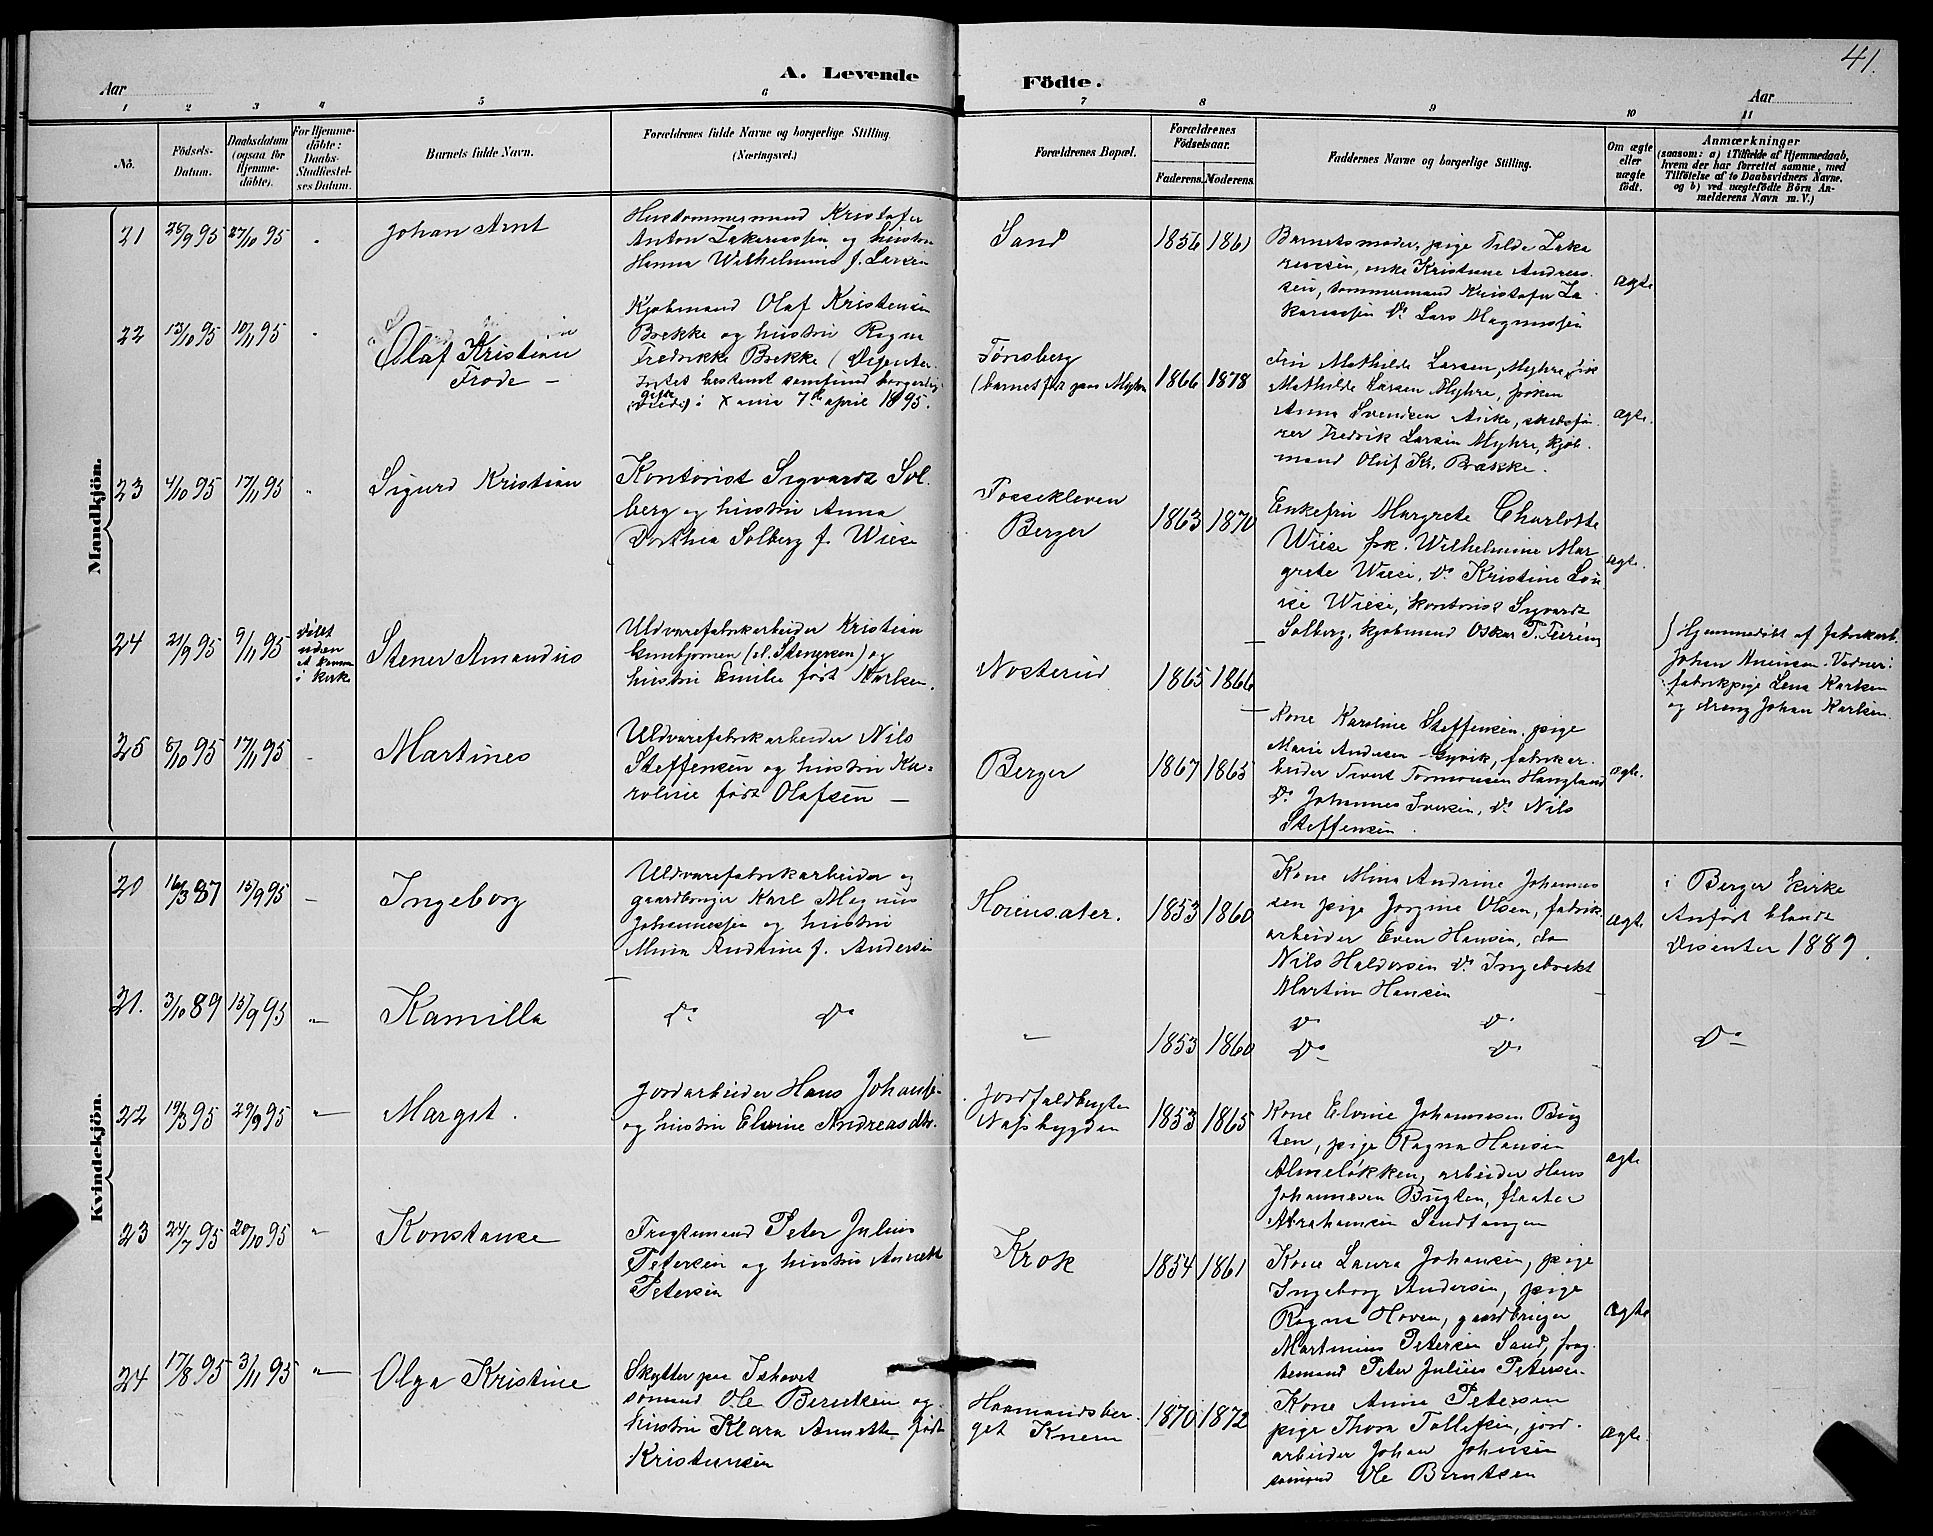 41.
A. Levende Födte.
Aar
Aar
1 2 3 4 5 6 7 8 9 10 11
No.
Födsels-
Datum.
Daabsdatum
(ogsaa for
Hjemme-
döbte).
For Hjemme-
döbte:
Daabs-
Stadfæstel-
ses Datum.
Barnets fulde Navn.
Forældrenes fulde Navne og borgerlige Stilling.
(Næringsvei.)
Forældrenes Bopæl.
Forældrenes
Födselsaar.
Faderens. Moderens.
Faddernes Navne og borgerlige Stilling.
Om ægte
eller
uægte
födt.
Anmærkninger
(saasom: a) i Tilfælde af Hjemmedaab,
hvem der har forrettet samme, med
Tilföielse af to Daabsvidners Navne.
og b) ved uægtefödte Börn An-
melderens Navn m. V.)
Mandkjön.
21
26/9 95
27/10 95
Johan Arnt
Hustommermand Kristofer
Anton Zakariassen og hustru
Hanna Wilhelmine f. Larsen
Sand
1856 1861
Barnets moder, pige Tilde Zaka
riassen, enke Kristine Andreas
sen, tommermand Kristofer Za
kariassen Do Lars Magnussen
ægte
22
13/10 95
10/11 95
Olaf Kristian
Frode –
Kjøbmand Olaf Kristensen
Brekke og hustru Ragna
Fredrikke Brekke (Disenter
Intet bestemt samfund borgerlig
gifte
(viede) i Xania 7de april 1895.
Tønsberg
(barnet født paa Myhre
1866 1878
Fru Mathilde Larsen, Myhre, frk
Mathilde Larsen Myhre, frøken
Anna Svendsen Aske, skibsfø
rer Fredrik Larsen Myhre, kjøb
mand Oluf Kr. Brekke.
ægte.
23
4/10 95
17/11 95
"
Sigurd Kristian
Kontorist Sigvardt Sol
berg og hustru Anna
Dorthea Solberg f. Wiese
Fossekleven
Berger
1863 1870
Enkefru Margrete Charlotte
Wiese frk. Wilhelmine Mar
grete Wiese, Do Kristine Lou
ise Wiese, kontorist Sigvardt
Solberg, kjøbmand Oskar T. Tiering
ægte.
24
21/9 95
9/11 95
døbt
uden
at komme
i kirke
Stener Amandus
Uldvarefabrikarbeider Kristian
Gunbjørnsen (el. Stenersen) og
hustru Emilie født Karlsen.
Nosterud
1865 1866
) Hjemmedøbt af fabrikarb.
Johan Arnesen. Vidner:
fabrikpige Lena Karlsen
og dreng Johan Karlsen.
25
8/10 95
17/11 95
Martines
Uldvarefabrikarbeider Nils
Steffensen og hustru Ka-
roline født Olafsen –
Berger
1867 1865
Kone Karoline Steffensen, pige
Marie Andersen Gyvik, fabrikar
beider Sivert Tormonsen Haugland
Do Johannes Iversen, Do Nils
Steffensen.
ægte.
Kvindekjön.
20
16/3 87
15/9 95
–
Ingeborg
Uldvarefabrikarbeider og
gaardbruger Karl Magnus
Johannessen og hustru
Mina Andrine f. Andersen
Hoiensæter.
1853 1860
Kone Mina Andrine Johannes
sen pige Jørgine Olsen, fabrik
arbeider Even Hansen, do
Nils Haldorsen Do Ingebrekt
Martin Hansen
ægte
i Berger kirke
Anført blandt
Disenter 1889.
21.
3/10 89
15/9 95
"
Kamilla
Do Do
"
1853 1860
Do Do
Do Do
Do
22
19/3 95
29/9 95
"
Margit.
Jordarbeider Hans Johansen
og hustru Elvine Andreasdtr.
Jordfaldbugten
Næsbygden
1853 1865
Kone Elvine Johannesen Bug
ten, pige Ragna Hansen
Almeløkken, arbeider Hans
Johannesen Bugten, fløater
Abrahamsen Sandtangen
ægte
23
24/7 95
20/10 95
"
Konstanse
Fragtemand Peter Julius
Petersen og hustru Annette
Petersen
Krok
1854 1861
Kone Laura Johansen, pige
Ingeborg Andersen, pige
Ragna Hoven, gaardbruger
Martinius Petersen Sand, frag
temand Peter Julius Petersen.
ægte
24
17/8 95
3/11 95
"
Olga Kristine
Skytter paa Ishavet
sømand Ole Berntsen og
hustru Klara Annette født
Kristensen
Haamandsber-
get Knem
1870 1872
Kone Anna Petersen
pige Thora Tollefsen, jord-
arbeider Johan Johnsen
sømand Ole Berntsen
ægte.